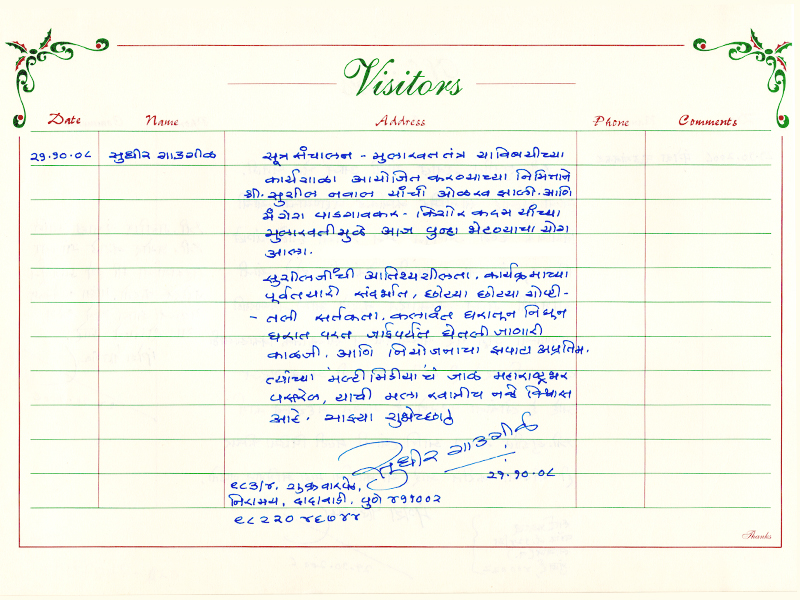 Visitors
Date Name Address Phone Comments
२९.१०.०८ सुधीर गाडगीळ सूत्र संचालन - मुलाखत तंत्र याविषयीच्या
कार्यशाळा आयोजित करण्याच्या निमित्ताने
श्री. सुशील नवाल यांची ओळख झाली. आणि
मंगेश पाडगावकर - किशोर कदम यांच्या
मुलाखतीमुळे आज पुन्हा भेटण्याचा योग
आला.
सुशीलजींची आतिथ्यशीलता, कार्यक्रमाच्या
पूर्वतयारी संदर्भात, छोट्या छोट्या गोष्टी-
- तली सतर्कता. कलावंत घरातून निघून
घरात परत जाईपर्यंत घेतली जाणारी
काळजी. आणि नियोजनाचा सपाटा अप्रतिम.
त्यांच्या मल्टीमिडीयाचं जाळं महाराष्ट्रभर
पसरेल, याची मला खात्रीच नव्हे विश्वास
आहे. माझ्या शुभेच्छा!
सुधीर गाडगीळ
२९.१०.०८
९८३/४, शुक्रवार पेठ,
निरामय, दादावाडी, पुणे ४११००२
९८२२० ४६७४४
Thanks